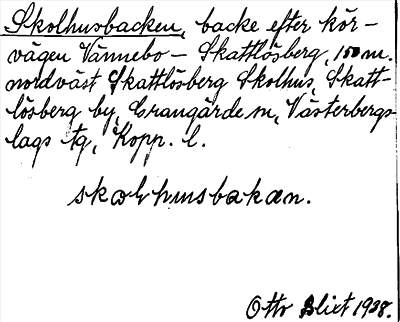 Skolhusbacken, backe efter kör-
vägen Vännebo – Skattlösberg, 150 m.
nordväst Skattlösberg Skolhus, Skatt-
lösberg by, Grangärde sn, Västerbergs-
lags tg, Kopp. l.
skolhusbakan.
Otto Blixt 1938.